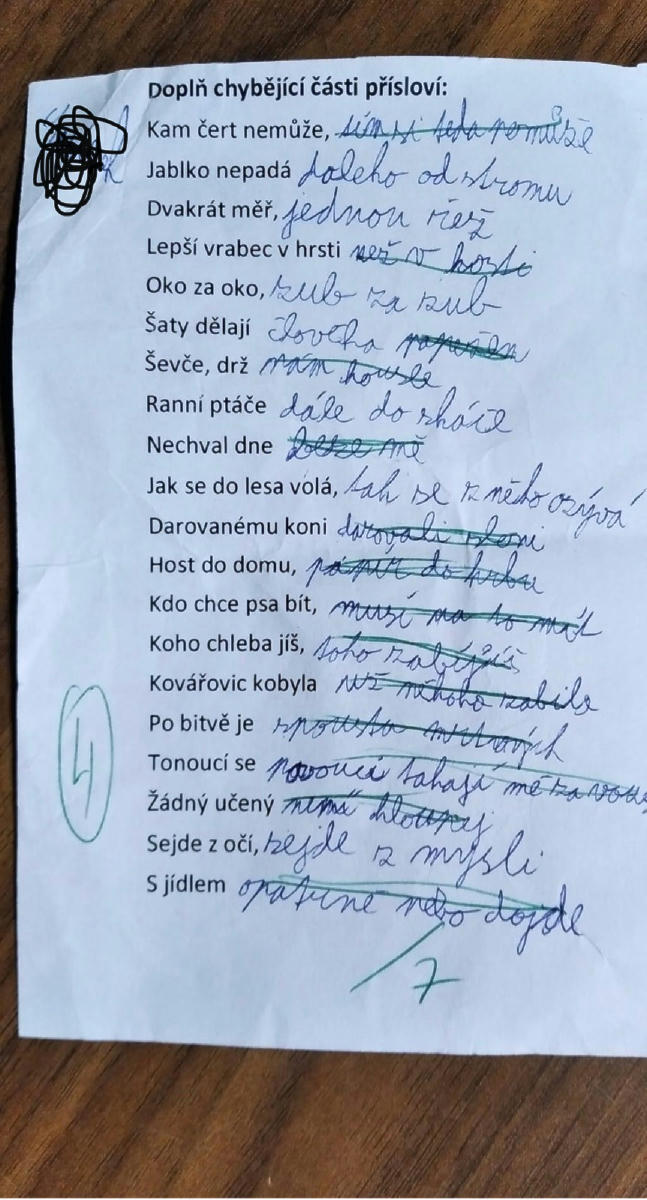 Doplň chybějící části přísloví:
Kam čert nemůže, tím si teda nemůže
Jablko nepadá daleko od stromu
Dvakrát měř, jednou řež
Lepší vrabec v hrsti než v hosti
Oko za oko, zub za zub
Šaty dělají člověka
Ševče, drž mám housle
Ranní ptáče dále do skáče
Nechval dne beze mě
Jak se do lesa volá, tak se z něho ozývá
Darovanému koni darovali sloni
Host do domu, papír do hrbu
Kdo chce psa bít, musí na to mít
Koho chleba jíš, toho zabíjíš
Kovářovic kobyla už někoho zabila
Po bitvě je spousta mrtvých
Tonoucí se tahají mě za
Žádný učený nemá hloupej
Sejde z očí, sejde z mysli
S jídlem opatrně nebo dojde
4
/7